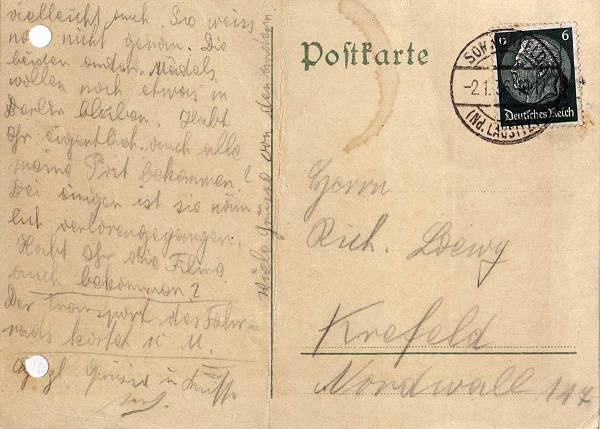 vielleicht auch. Sie weiss
noch nicht genau. Die
beiden andern Mädels
wollen noch etwas in
Berlin bleiben. Habt
Ihr eigentlich auch alle
meine Post bekommen?
Bei einigen ist sie näm-
lich verlorengegangen.
Habt Ihr die Filme
auch bekommen?
Der Transport des Fahr-
rads kostet 10 M.
Grüsse u. Küsse
Viele Grüsse von den andern
Postkarte
6 6
Deutsches Reich
-2.1.
(Nd. LAUSITZ)
Herrn
Rich. Loewy
Krefeld
Nordwall 117